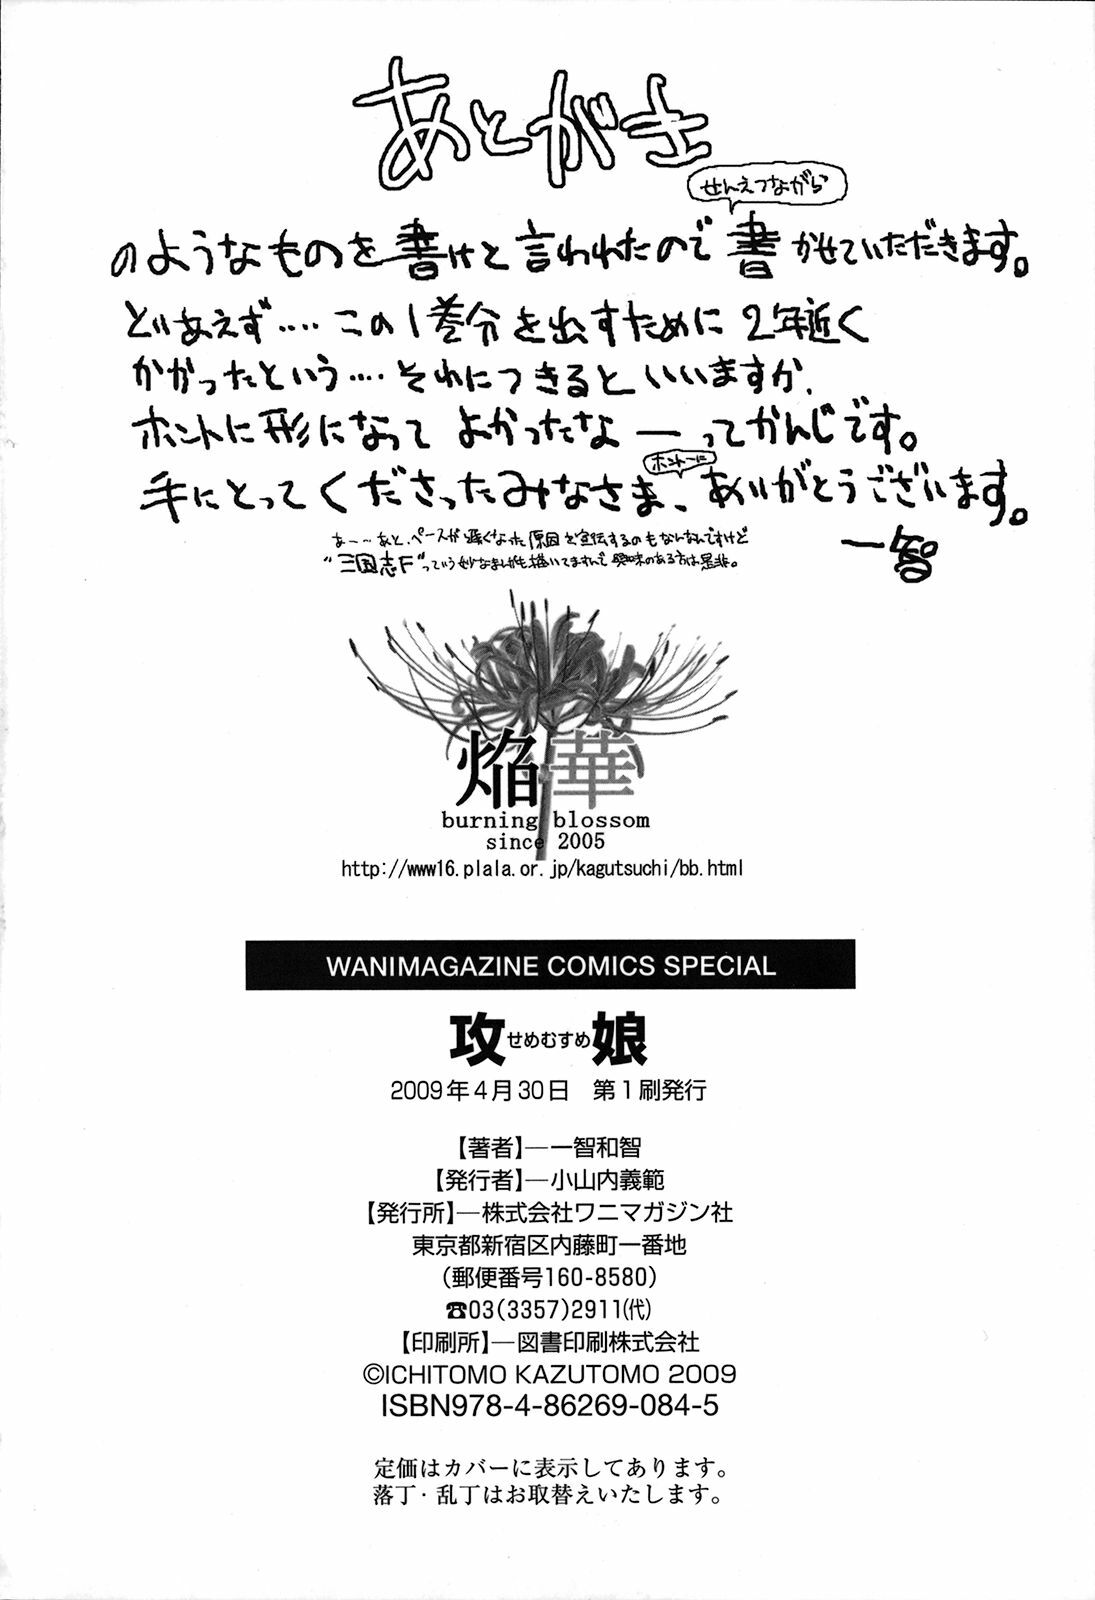 あとがき
せんえつながら
のようなものを書けと言われたので書かせていただきます。
とりあえず‥‥この1巻分を出すために2年近く
かかったという‥‥それにつきるといいますか、
ホントに形になってよかったなーってかんじです。
ホントーに
手にとってくださったみなさま、ありがとうございます。
あー…あと、ペースが遅くなった原因を宣伝するのもなんなんですけど
"三国志F"っていう妙なまんがも描いてますんで興味のある方は是非。
一智
焔華
burning blossom
since 2005
http://www16.plala.or.jp/kagutsuchi/bb.html
WANIMAGAZINE COMICS SPECIAL
攻せめむすめ娘
2009年4月30日　第1刷発行
【著者】―一智和智
【発行者】―小山内義範
【発行所】―株式会社ワニマガジン社
東京都新宿区内藤町一番地
(郵便番号160-8580)
☎03(3357)2911(代)
【印刷所】―図書印刷株式会社
©ICHITOMO KAZUTOMO 2009
ISBN978-4-86269-084-5
定価はカバーに表示してあります。
落丁・乱丁はお取替えいたします。